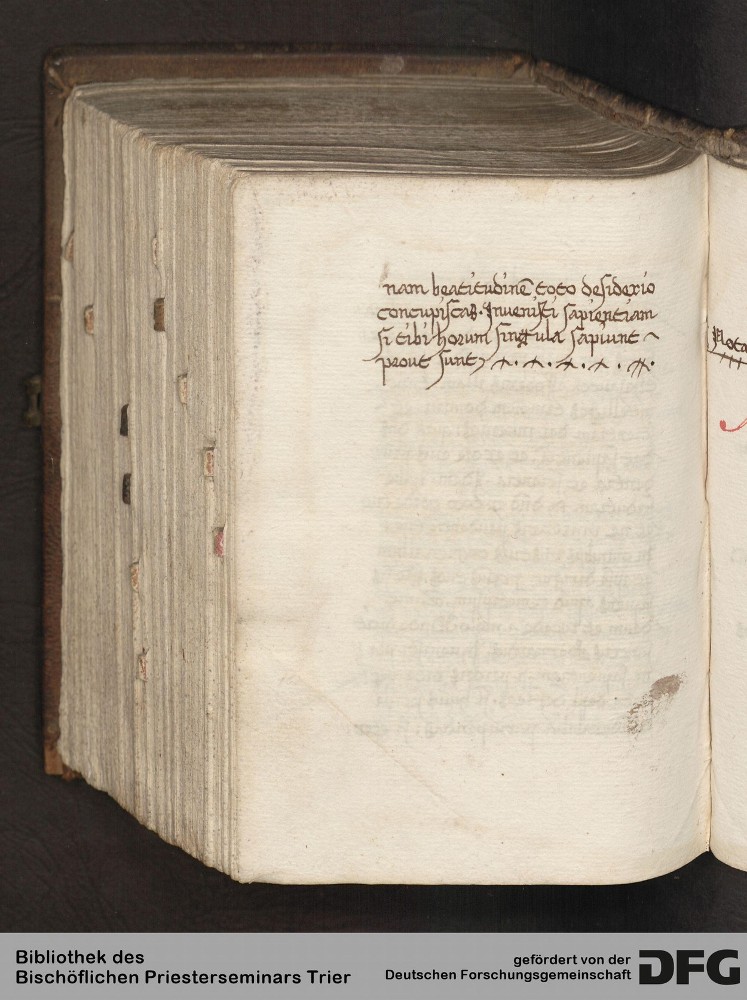 nam beatitudinē toto desiderio
concupiscas. Invenisti sapientiam
si tibi horum singula sapiunt
prout sunt
Nota
Bibliothek des
Bischöflichen Priesterseminars Trier
gefördert von der
Deutschen Forschungsgemeinschaft
DFG